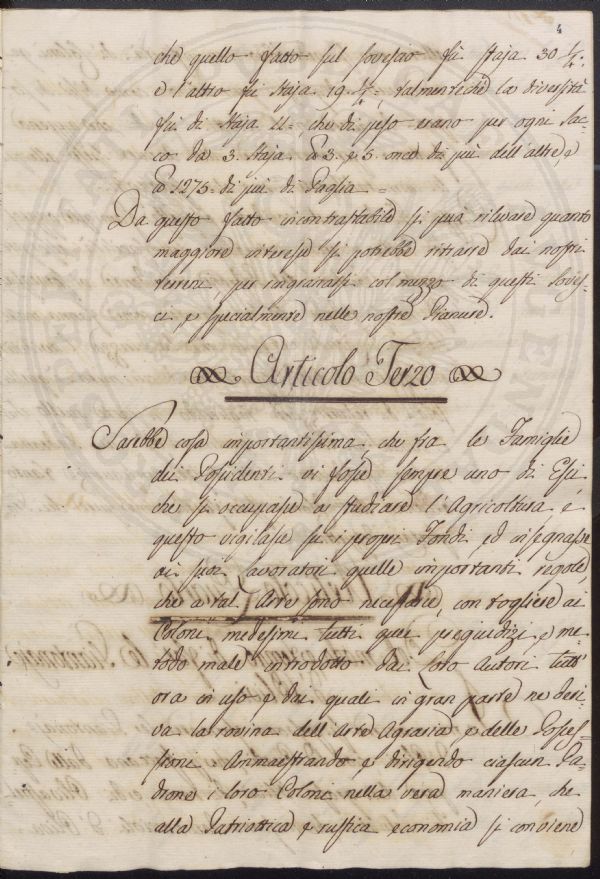 4
che quello fatto sul sovescio fù Staja 30 1/4.
e l'altro fù Staja 19 1/4; talmenteché la diversità
fu di Staja 11=, che di peso erano per ogni Sac-
co da 3. Staja ℔ 3. e 5. once di più dell'altre, e
℔ 1275. di più di Paglia =
Da questo fatto incontrastabile si può rilevare quanto
maggiore interesse si potrebbe ritrarre dai nostri
terreni per ingranarsi col mezzo di questi Soves-
ci e specialmente nelle nostre Pianure.
Articolo Terzo
Sarebbe cosa importantissima, che fra le Famiglie
dei Possidenti vi fosse sempre uno di Essi,
che si occupasse a studiare l'Agricoltura e
questo vigilasse su i propri Fondi, ed insegnasse
ai suoi Lavoratori quelle importanti regole,
che a tal' Arte sono necessarie, con togliere ai
Coloni medesimi tutti quei pregiudizi, e me-
todo male introdotto dai loro Autori tutt'
ora in uso e dai quali in gran parte ne deri-
va la rovina dell'Arte Agraria e delle Posses-
sioni Ammaestrando e dirigendo ciascun Pa-
drone i loro Coloni nella vera maniera, che
alla Patriottica e rustica economia si conviene